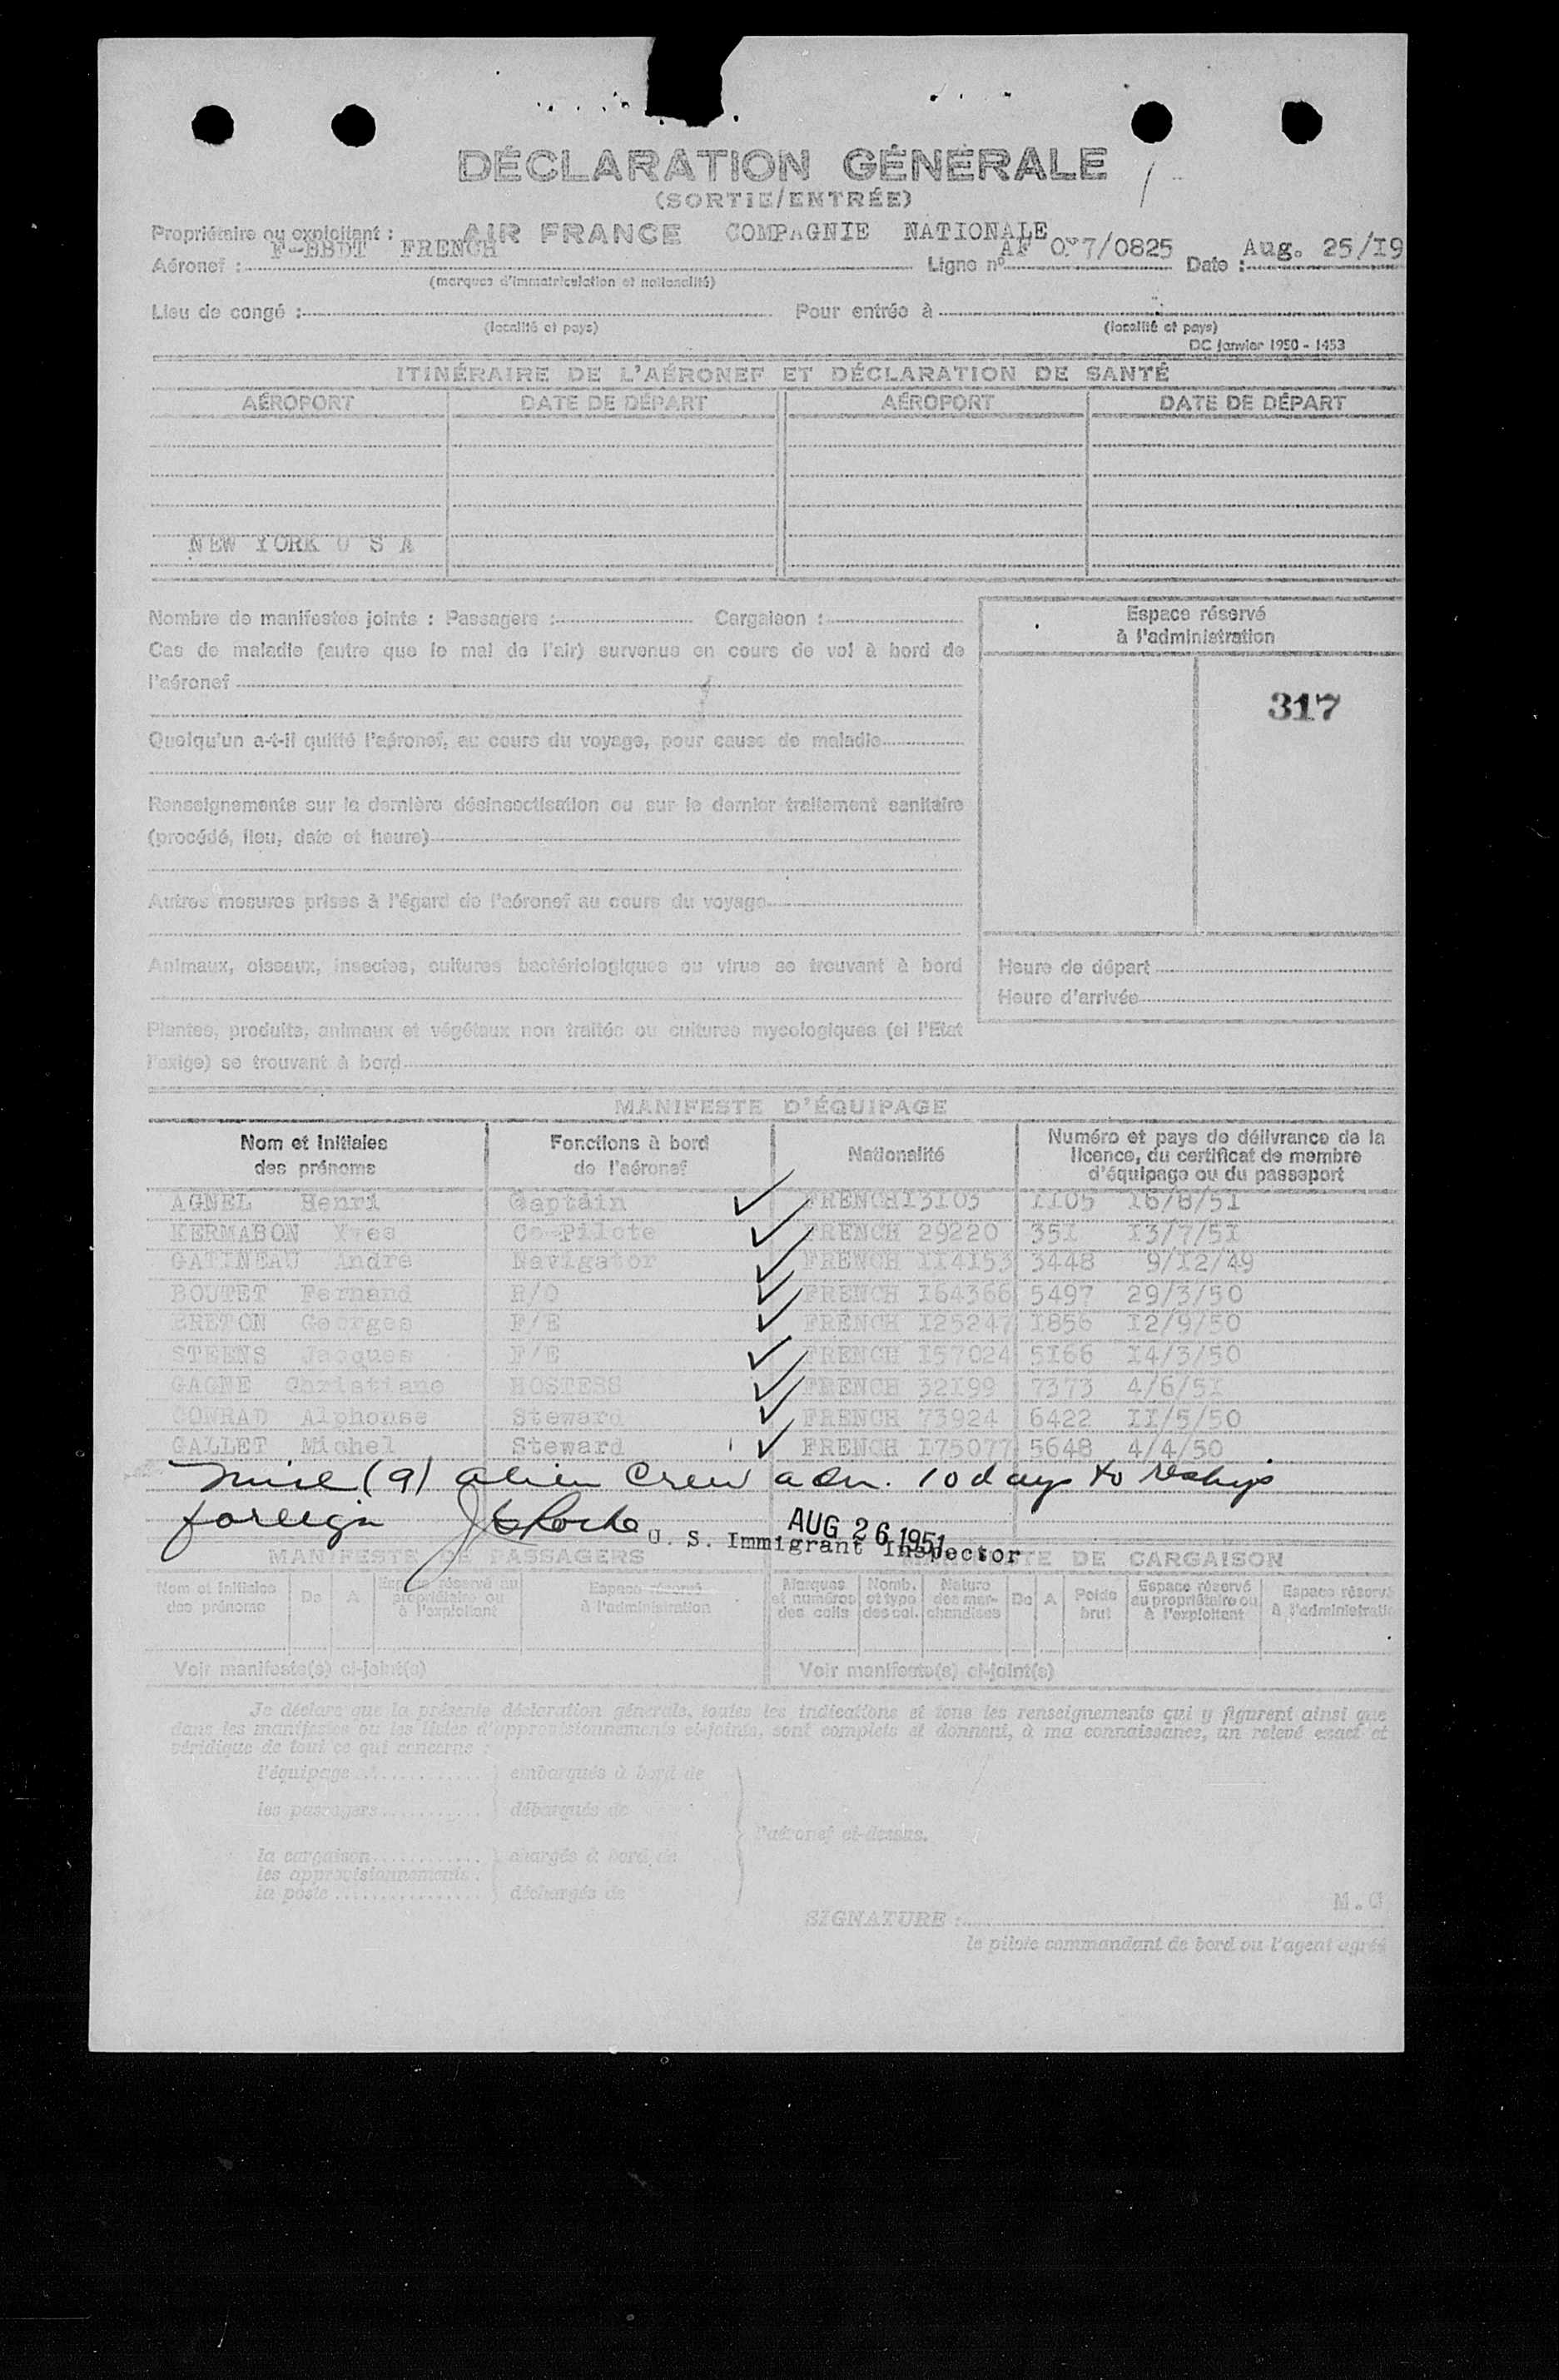 DÉCLARATION GÉNÉRALE
(SORTIE/ENTRÉE)
Propriétaire ou exploitant : AIR FRANCE COMPAGNIE NATIONALE
F-BBDT FRENCH AF 077/0825 Aug. 25/19
Aéronef : Ligne nº Date :
(marques d'immatriculation et nationalité)
Lieu de congé : Pour entrée à
(localité et pays) (localité et pays)
DC Janvier 1950 - 1453
ITINÉRAIRE DE L'AÉRONEF ET DÉCLARATION DE SANTÉ
AÉROPORT DATE DE DÉPART AÉROPORT DATE DE DÉPART
NEW YORK U S A
Nombre de manifestes joints : Passagers : Cargaison :
Espace réservé
à l'administration
Cas de maladie (autre que le mal de l'air) survenus en cours de vol à bord de
l'aéronef
317
Quelqu'un a-t-il quitté l'aéronef, au cours du voyage, pour cause de maladie
Renseignements sur la dernière désinsectisation ou sur le dernier traitement sanitaire
(procédé, lieu, date et heure)
Autres mesures prises à l'égard de l'aéronef au cours du voyage
Animaux, oiseaux, insectes, cultures bactériologiques ou virus se trouvant à bord
Heure de départ
Heure d'arrivée
Plantes, produits, animaux et végétaux non traités ou cultures mycologiques (si l'Etat
l'exige) se trouvant à bord
MANIFESTE D'ÉQUIPAGE
Nom et initiales des prénoms Fonctions à bord de l'aéronef Nationalité Numéro et pays de délivrance de la licence, du certificat de membre d'équipage ou du passeport
AGNEL Henri Captain FRENCH I3I03 II05 I6/8/5I
KERMABON Yves Co-Pilote FRENCH 29220 35I I3/7/5I
GATINEAU Andre Navigator FRENCH II4I53 3448 9/I2/49
BOUTET Fernand R/O FRENCH I64366 5497 29/3/50
BRETON Georges F/E FRENCH I25247 I856 I2/9/50
STEENS Jacques F/E FRENCH I57024 5I66 I4/3/50
GAGNE Christiane HOSTESS FRENCH 32I99 7373 4/6/5I
CONRAD Alphonse Steward FRENCH 73924 6422 II/5/50
GALLET Michel Steward FRENCH I75077 5648 4/4/50
Nine (9) alien Crew adm. 10 days to reship
foreign
AUG 26 1951
U. S. Immigrant Inspector
MANIFESTE DE PASSAGERS DE CARGAISON
Nom et initiales des prénoms De A Espace réservé au propriétaire ou à l'exploitant Espace réservé à l'administration Marques et numéros des colis Nomb. et type des col. Nature des marchandises De A Poids brut Espace réservé au propriétaire ou à l'exploitant Espace réservé à l'administratio
Voir manifeste(s) ci-joint(s) Voir manifeste(s) ci-joint(s)
Je déclare que la présente déclaration générale, toutes les indications et tous les renseignements qui y figurent ainsi que
dans les manifestes ou les listes d'approvisionnements ci-joints, sont complets et donnent, à ma connaissance, un relevé exact et
véridique de tout ce qui concerne :
l'équipage embarqués à bord de
les passagers débarqués de
l'aéronef ci-dessus.
la cargaison chargés à bord de
les approvisionnements
la poste déchargés de
M.G
SIGNATURE :
le pilote commandant de bord ou l'agent agréé